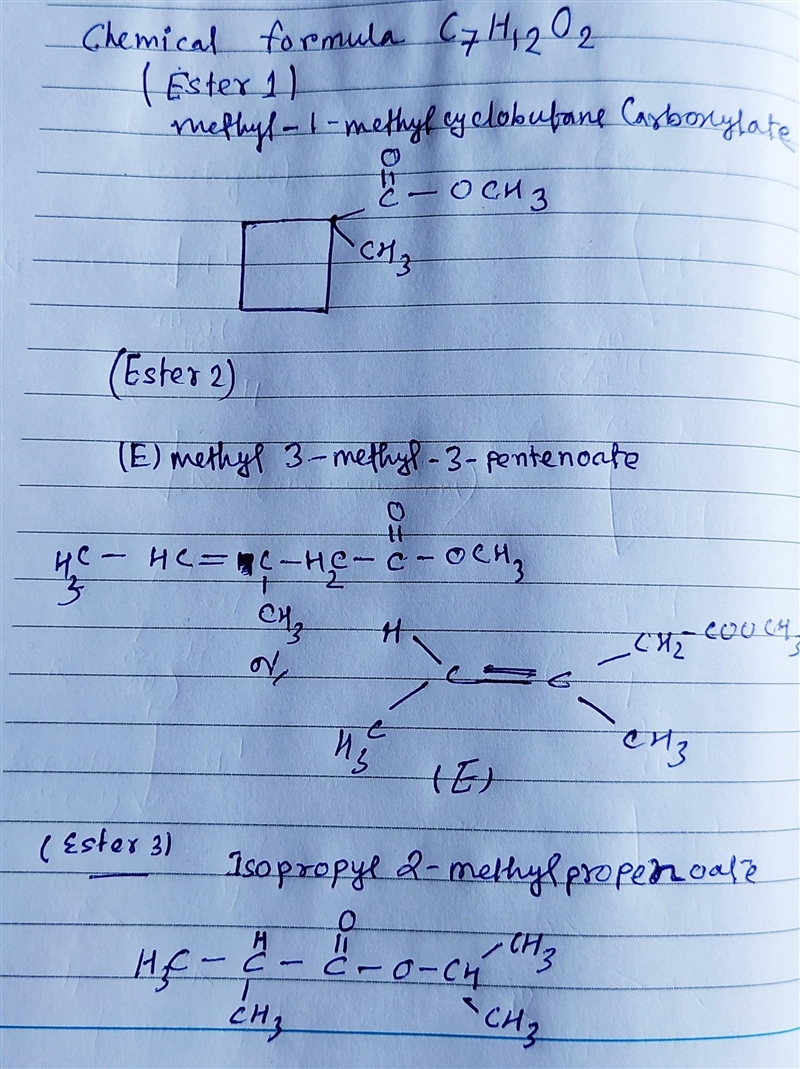 Chemical formula C₇H₁₂O₂
(Ester 1)
methyl-1-methylcyclobutane Carboxylate
O
C - OCH₃
CH₃
(Ester 2)
(E) methyl 3-methyl-3-pentenoate
O
H₃C - HC = C - H₂C - C - OCH₃
CH₃
H CH₂-COOCH₃
or,
C = C
H₃C CH₃
(E)
(Ester 3) Isopropyl 2-methylpropenoate
O
H CH₃
H₃C - C - C - O - CH
CH₃ CH₃